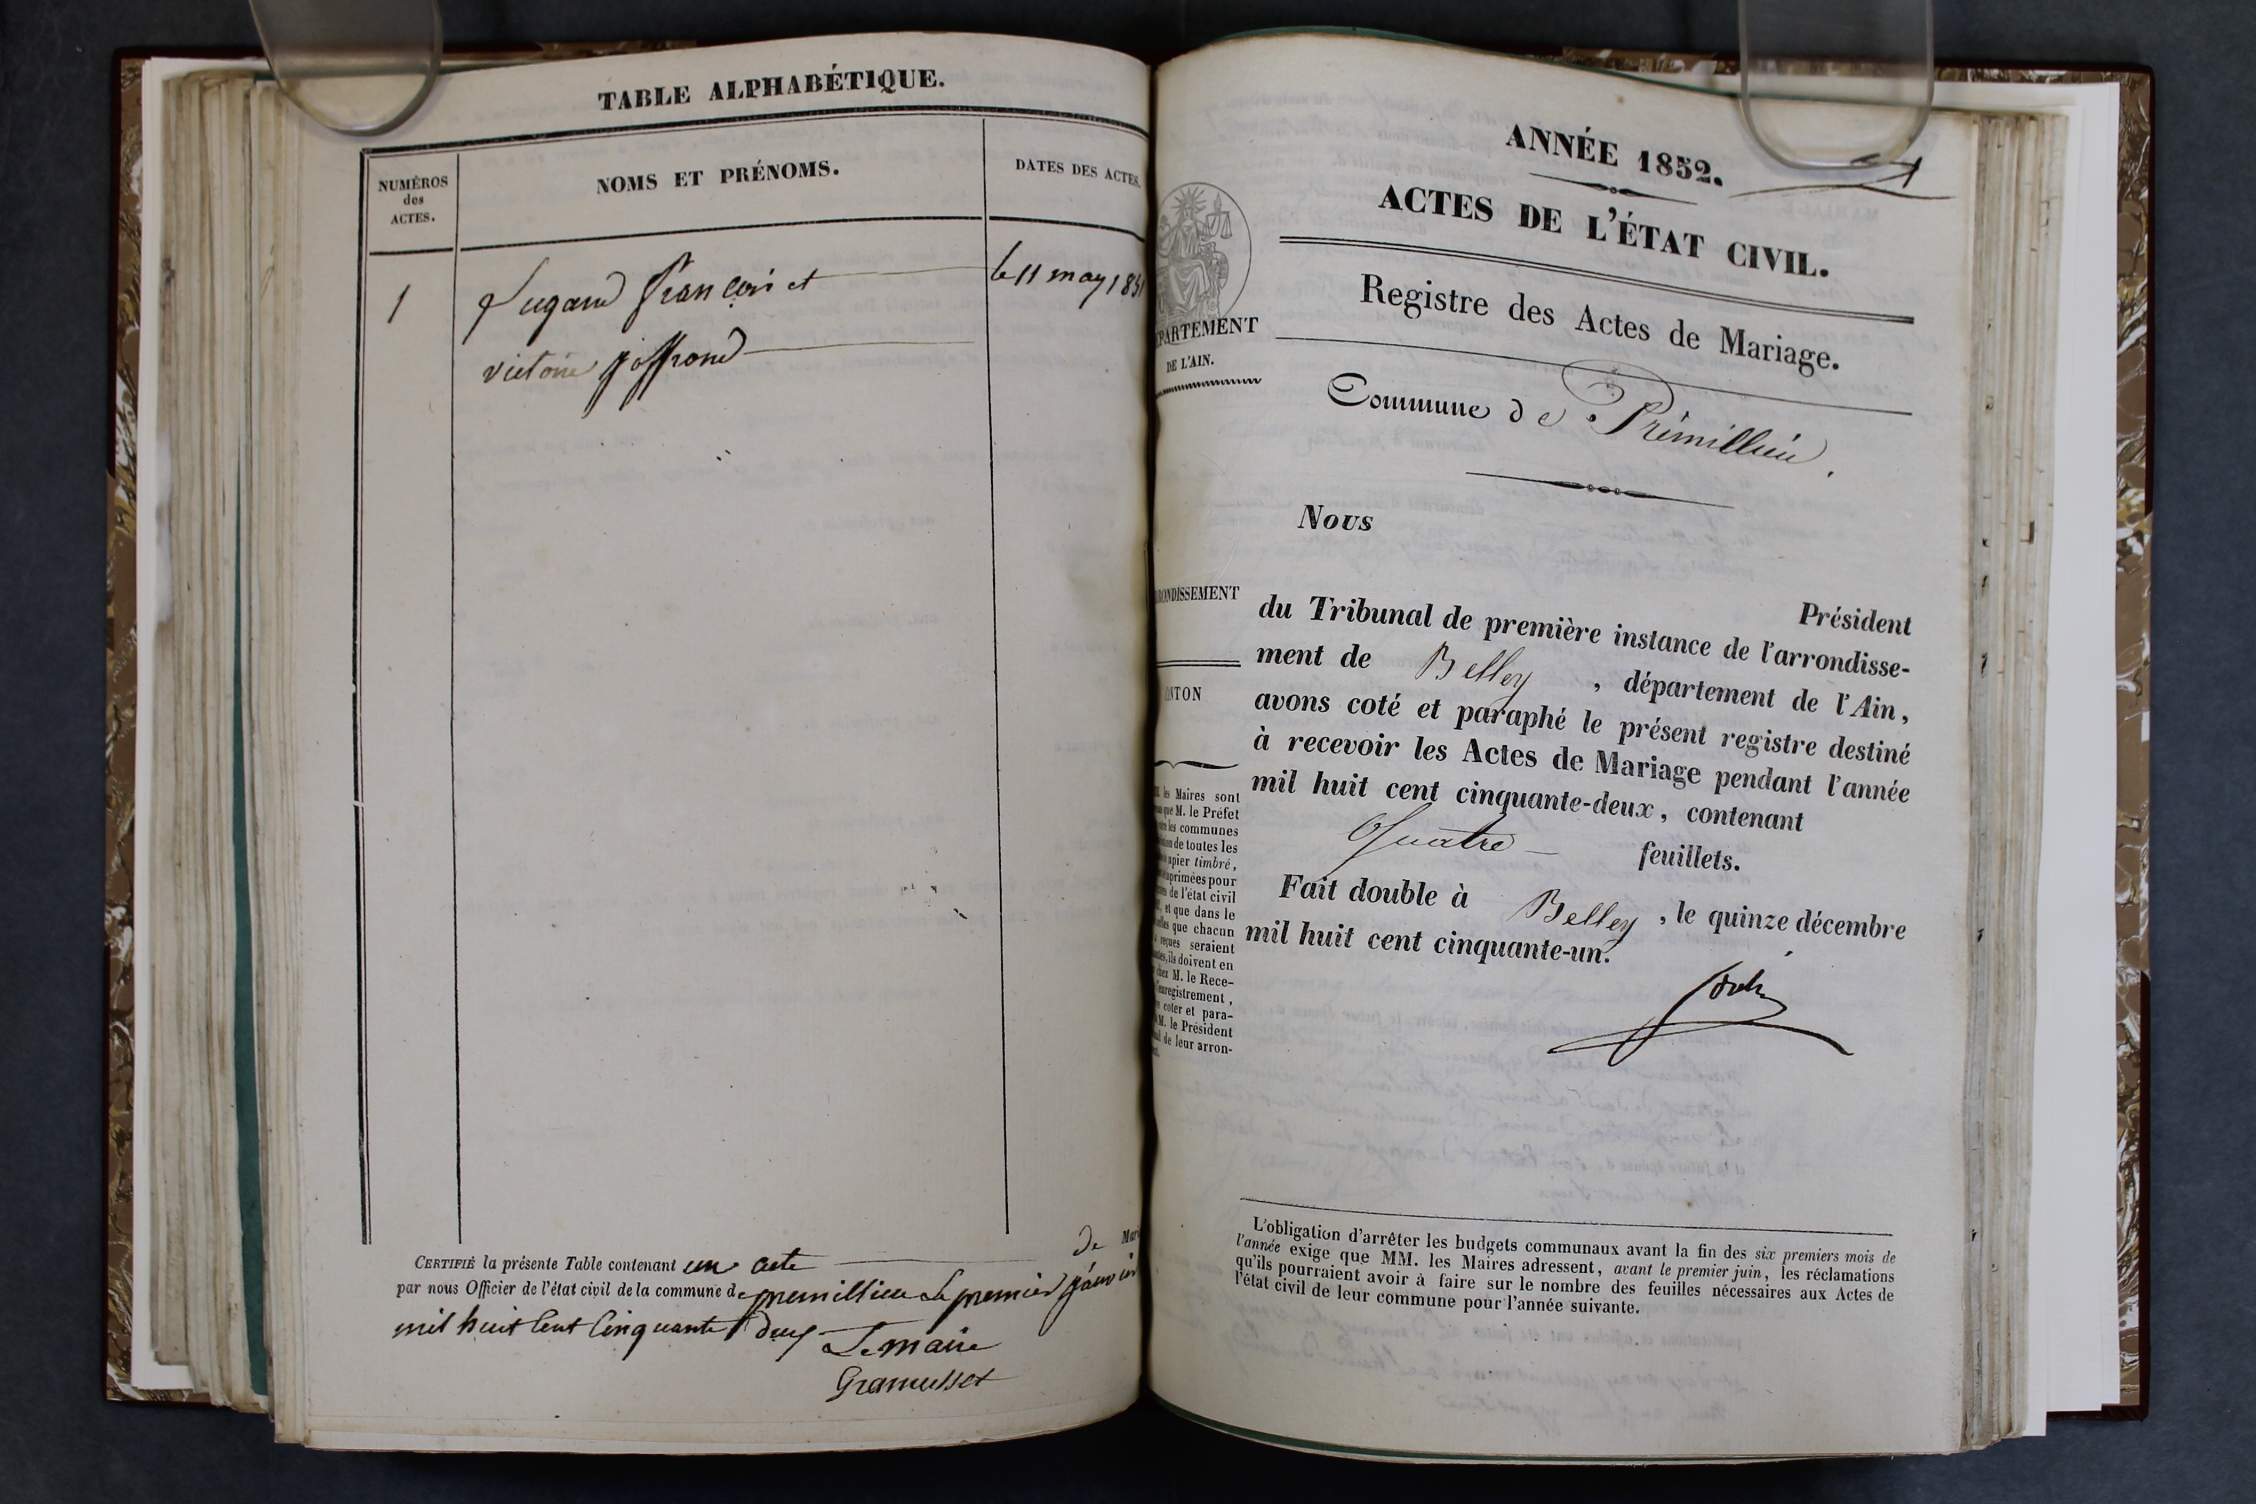 TABLE ALPHABÉTIQUE.
NUMÉROS
des
ACTES.
NOMS ET PRÉNOMS.
DATES DES ACTES.
1
Lugand François et
le 11 may 185
victoire joffrond
CERTIFIÉ la présente Table contenant un acte de Mari
par nous Officier de l'état civil de la commune de premillieu Le premier janvier
mil huit Cent Cinquante deux Le maire
Gramusset
ANNÉE 1852.
1
ACTES DE L'ÉTAT CIVIL.
Registre des Actes de Mariage.
PARTEMENT
DE L'AIN.
Commune de Prémillieu.
Nous
Président
RONDISSEMENT
du Tribunal de première instance de l'arrondisse-
ment de Belley, département de l'Ain,
NTON
avons coté et paraphé le présent registre destiné
à recevoir les Actes de Mariage pendant l'année
mil huit cent cinquante-deux, contenant
Quatre feuillets.
Fait double à Belley, le quinze décembre
mil huit cent cinquante-un.
les Maires sont
que M. le Préfet
les communes
de toutes les
apier timbré,
primées pour
de l'état civil
et que dans le
que chacun
reçues seraient
ils doivent en
chez M. le Rece-
enregistrement,
coter et para-
M. le Président
de leur arron-
L'obligation d'arrêter les budgets communaux avant la fin des six premiers mois de
l'année exige que MM. les Maires adressent, avant le premier juin, les réclamations
qu'ils pourraient avoir à faire sur le nombre des feuilles nécessaires aux Actes de
l'état civil de leur commune pour l'année suivante.